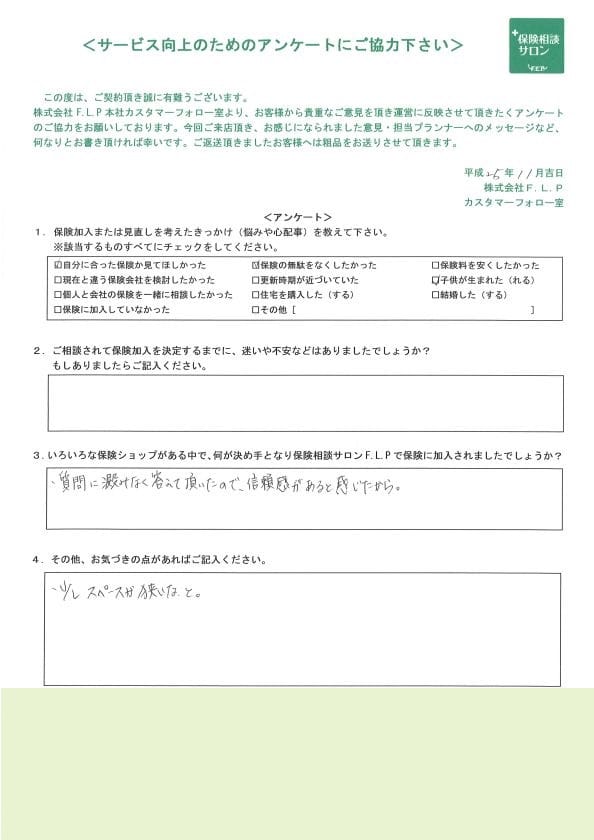 ＜サービス向上のためのアンケートにご協力下さい＞
+保険相談
サロン
F.L.P
この度は、ご契約頂き誠に有難うございます。
株式会社F.L.P本社カスタマーフォロー室より、お客様から貴重なご意見を頂き運営に反映させて頂きたくアンケート
のご協力をお願いしております。今回ご来店頂き、お感じになられました意見・担当プランナーへのメッセージなど、
何なりとお書き頂ければ幸いです。ご返送頂きましたお客様へは粗品をお送りさせて頂きます。
平成25年11月吉日
株式会社F.L.P
カスタマーフォロー室
＜アンケート＞
1．保険加入または見直しを考えたきっかけ（悩みや心配事）を教えて下さい。
※該当するものすべてにチェックをしてください。
☑自分に合った保険か見てほしかった ☑保険の無駄をなくしたかった □保険料を安くしたかった
□現在と違う保険会社を検討したかった □更新時期が近づいていた ☑子供が生まれた（れる）
□個人と会社の保険を一緒に相談したかった □住宅を購入した（する） □結婚した（する）
□保険に加入していなかった □その他［ ］
2．ご相談されて保険加入を決定するまでに、迷いや不安などはありましたでしょうか？
もしありましたらご記入ください。
3．いろいろな保険ショップがある中で、何が決め手となり保険相談サロンF.L.Pで保険に加入されましたでしょうか？
・質問に澱みなく答えて頂いたので、信頼感があると感じたから。
4．その他、お気づきの点があればご記入ください。
・少し スペースが狭いな、と。